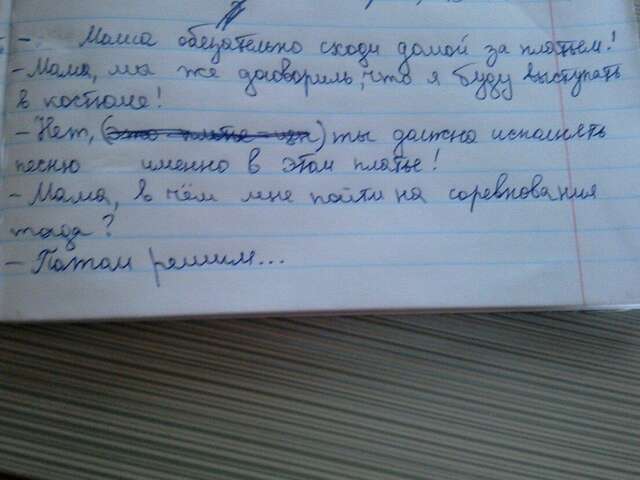 - Маша обезательно сходи домой за платьем!
- Мама, мы же договорилы, что я буду выступать
в костюме!
- Нет, ( ) ты должна исполнять
песню именно в этом платье!
- Мама, в чём мне пойти на соревнования
тогда?
- Потом решим...